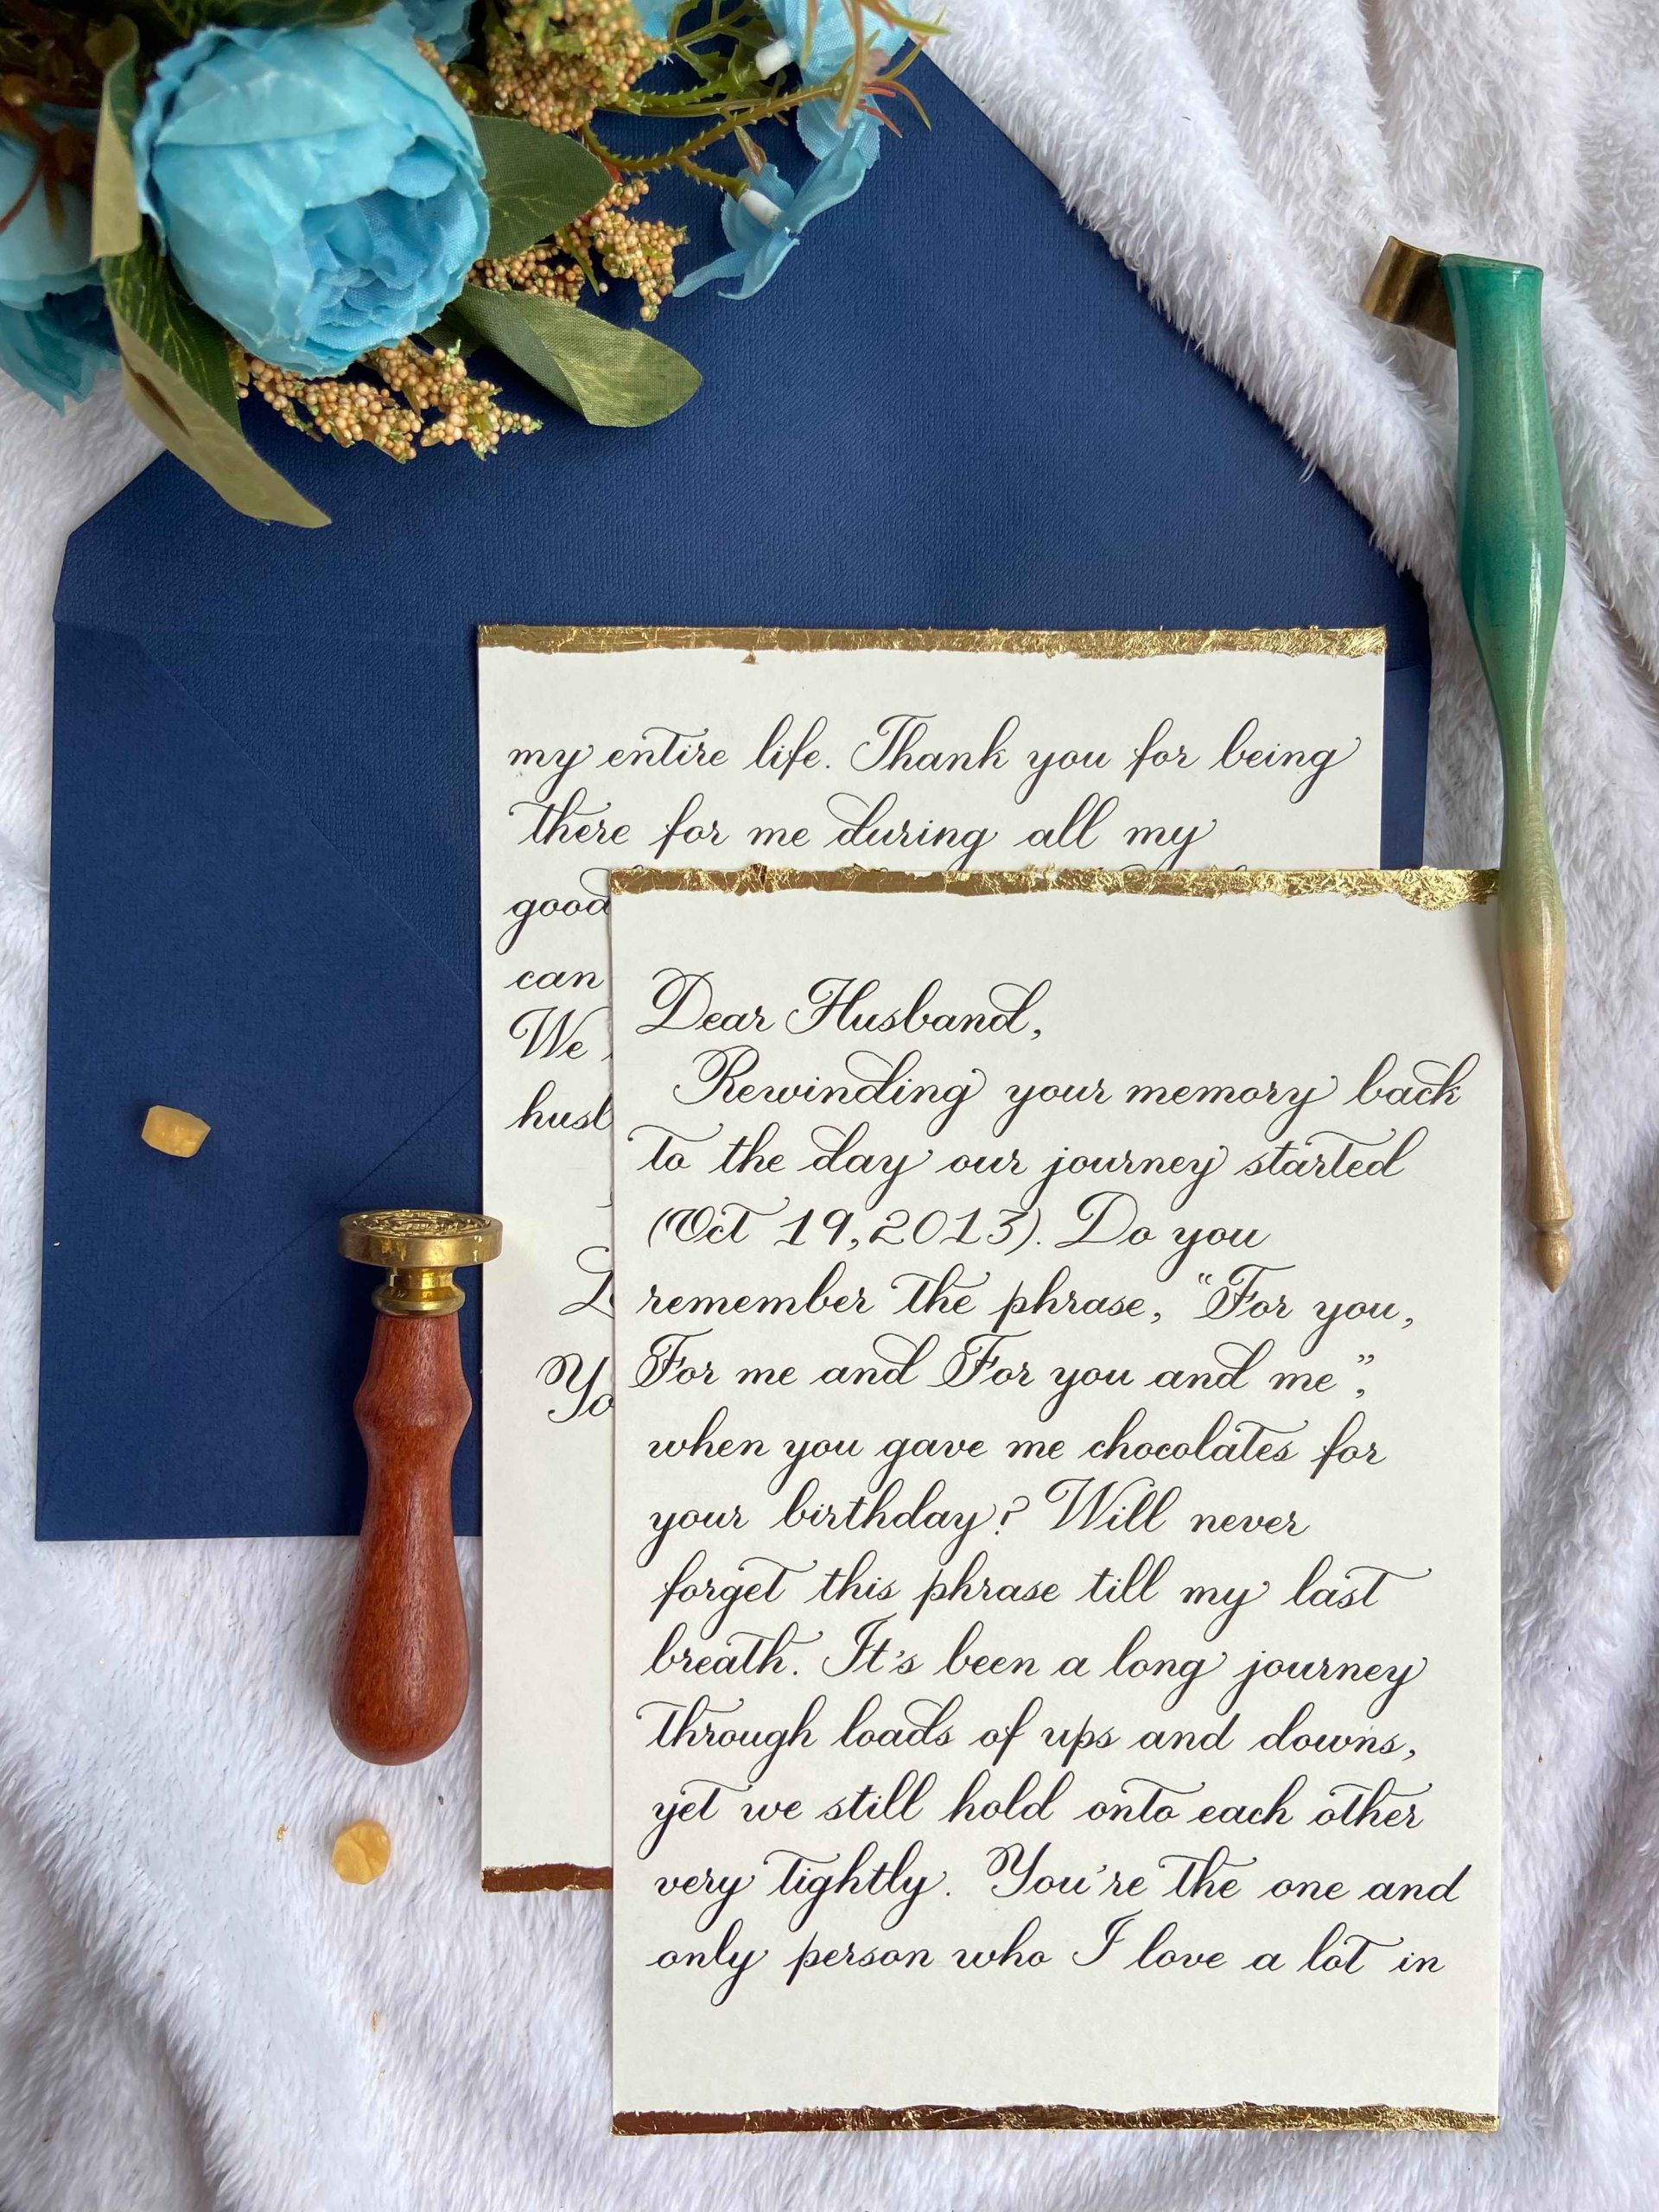 Dear Husband,
Rewinding your memory back
to the day our journey started
(Oct 19, 2013). Do you
remember the phrase, "For you,
For me and For you and me",
when you gave me chocolates for
your birthday? Will never
forget this phrase till my last
breath. It's been a long journey
through loads of ups and downs,
yet we still hold onto each other
very tightly. You're the one and
only person who I love a lot in
my entire life. Thank you for being
there for me during all my
good
can
We